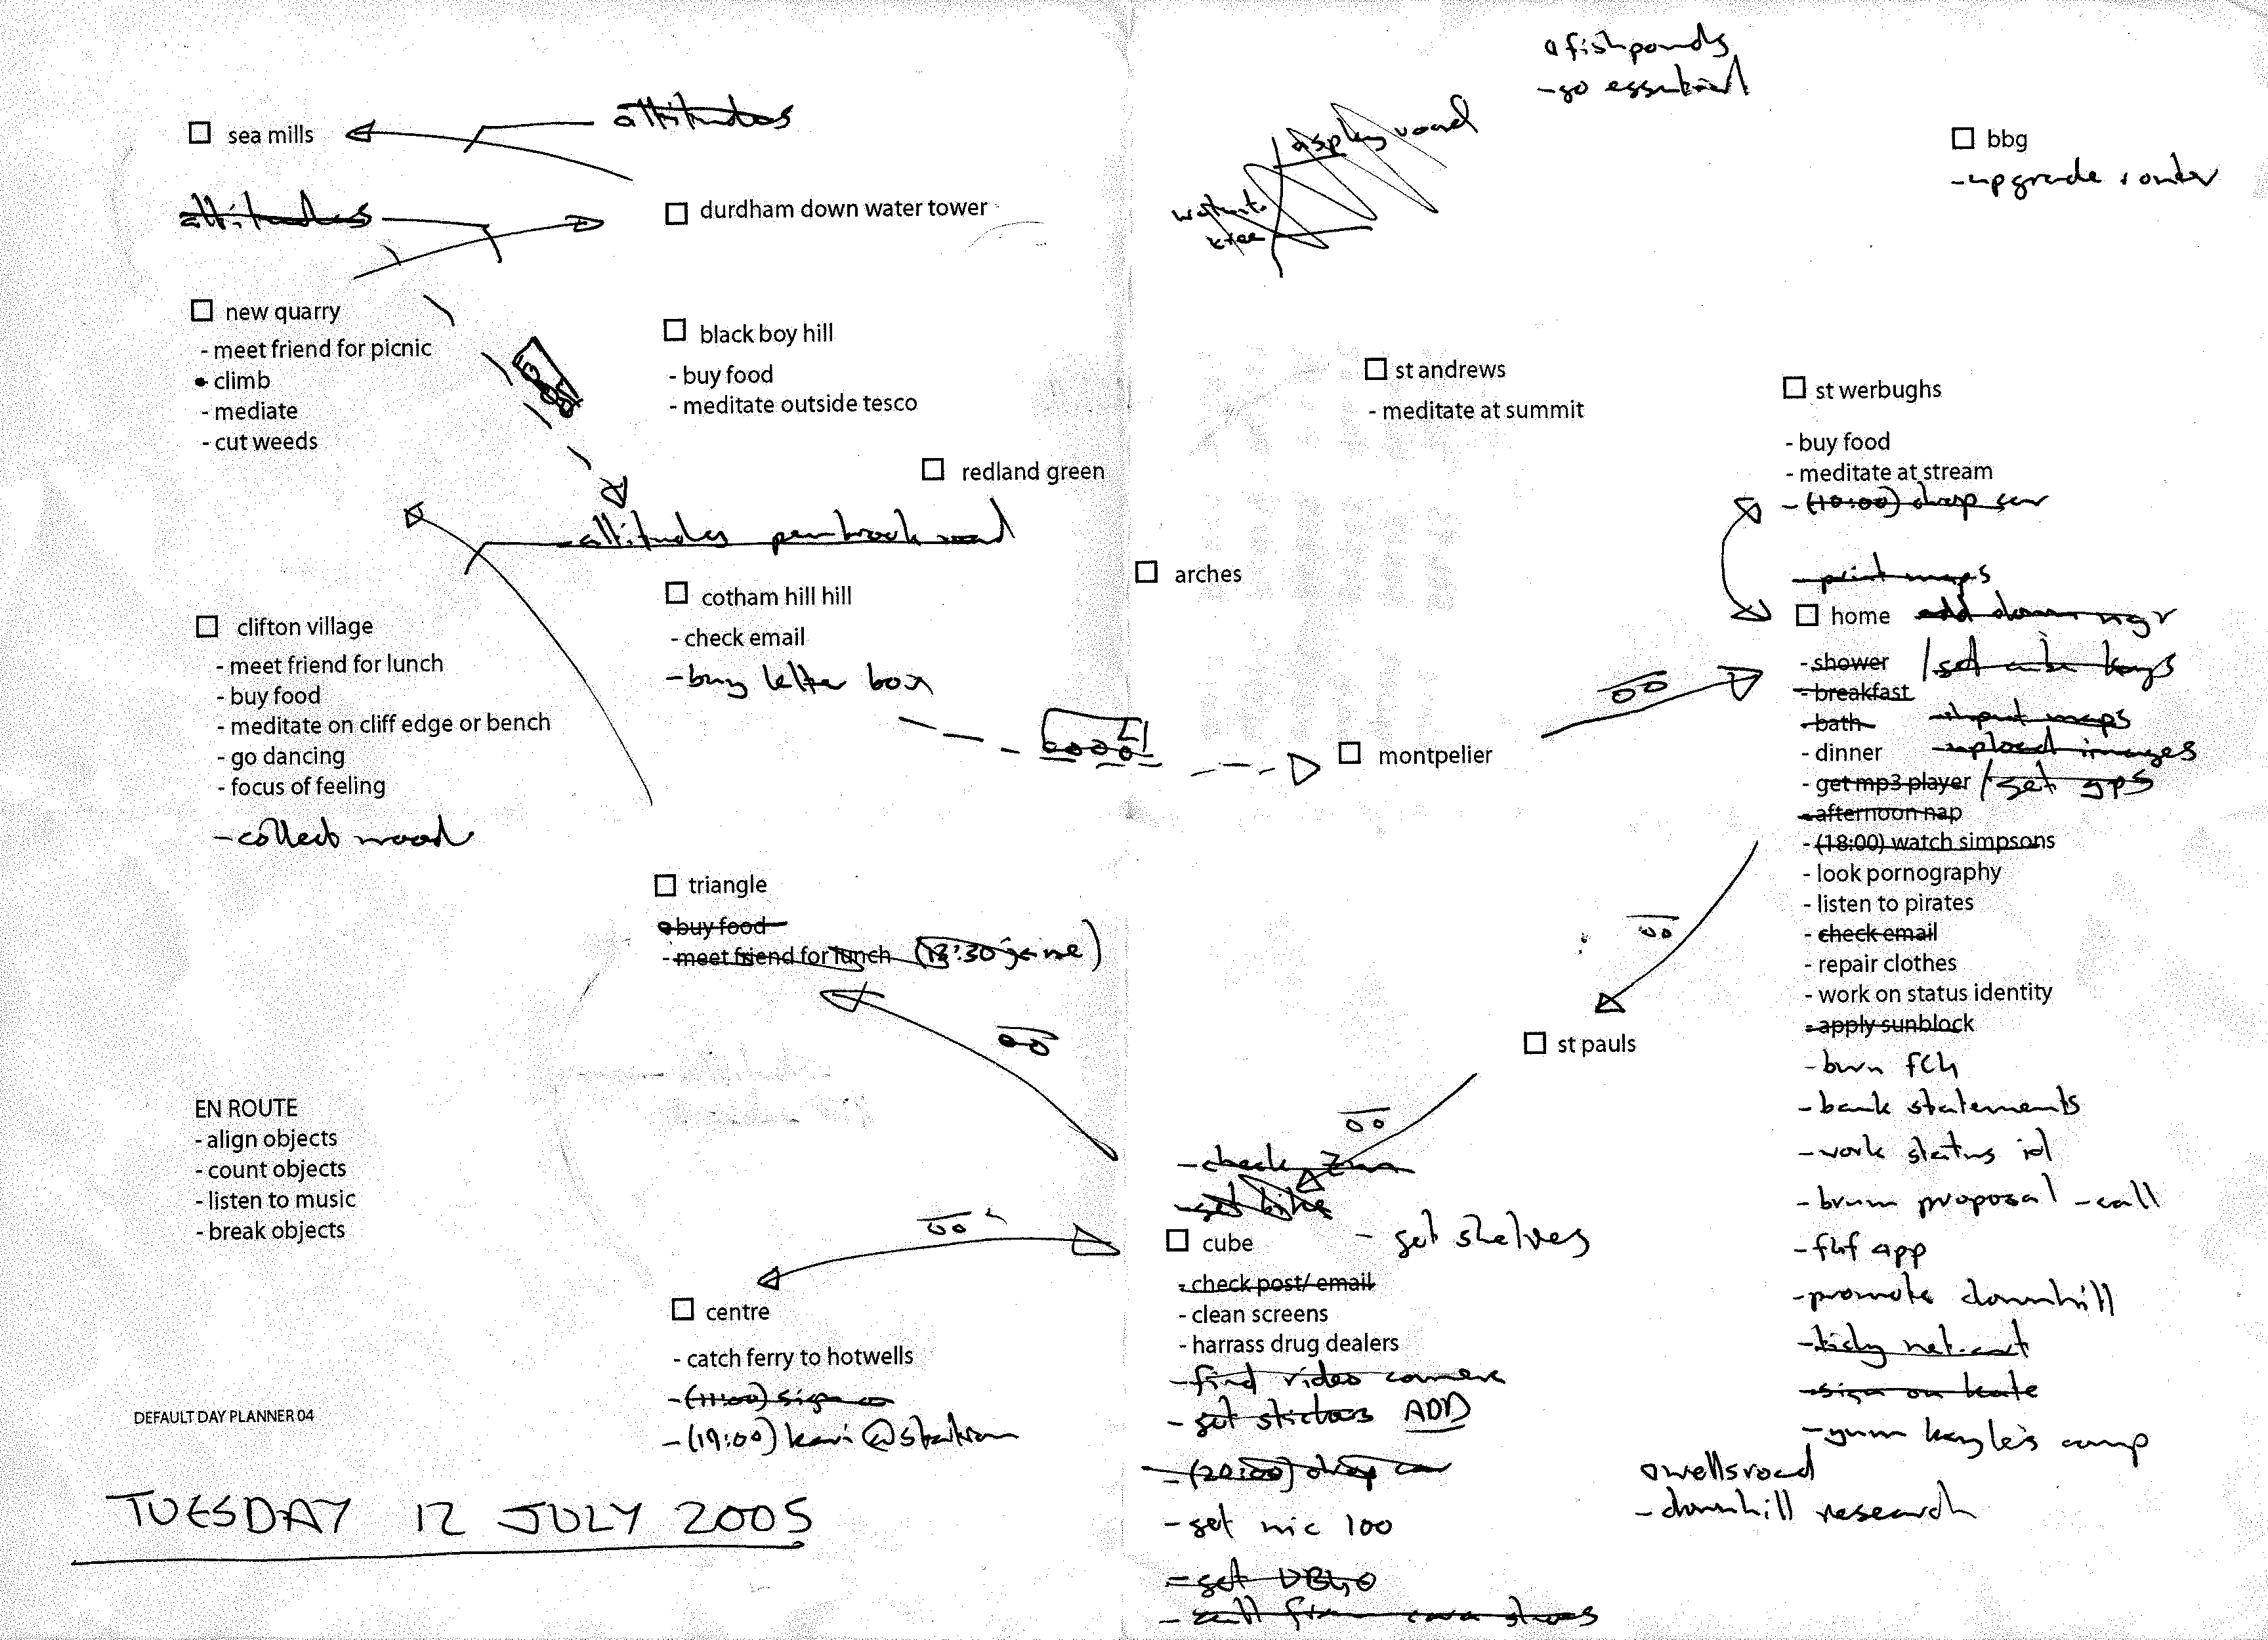 fishponds
- go essential
attitudes
sea mills
display road
bbg
- upgrade router
attitudes
durdham down water tower
new quarry
- meet friend for picnic
climb
- mediate
- cut weeds
black boy hill
- buy food
- meditate outside tesco
st andrews
- meditate at summit
st werbughs
- buy food
- meditate at stream
- (10:00) drop
redland green
- attitudes pembrook road
arches
- print maps
cotham hill hill
- check email
- buy letter box
home
- shower / get cube keys
- breakfast
- bath
- input maps
- dinner
- upload images
- get mp3 player / get gps
- afternoon nap
- (18:00) watch simpsons
- look pornography
- listen to pirates
- check email
- repair clothes
- work on status identity
- apply sunblock
- burn
- bank statements
- work status id
- brum proposal - call
- app
- promote downhill
- tidy
- sign on
- camp
clifton village
- meet friend for lunch
- buy food
- meditate on cliff edge or bench
- go dancing
- focus of feeling
- collect wood
montpelier
triangle
buy food
- meet friend for lunch (13:30
st pauls
EN ROUTE
- align objects
- count objects
- listen to music
- break objects
- check
- get bike
cube
- get shelves
- check post/ email
- clean screens
- harrass drug dealers
- find video camera
- get stickers ADD
- (20:00) drop
- get mic 100
- get
- call from
centre
- catch ferry to hotwells
- (11:00) sign on
- (19:00)
wellsroad
- downhill research
DEFAULT DAY PLANNER 04
TUESDAY 12 JULY 2005